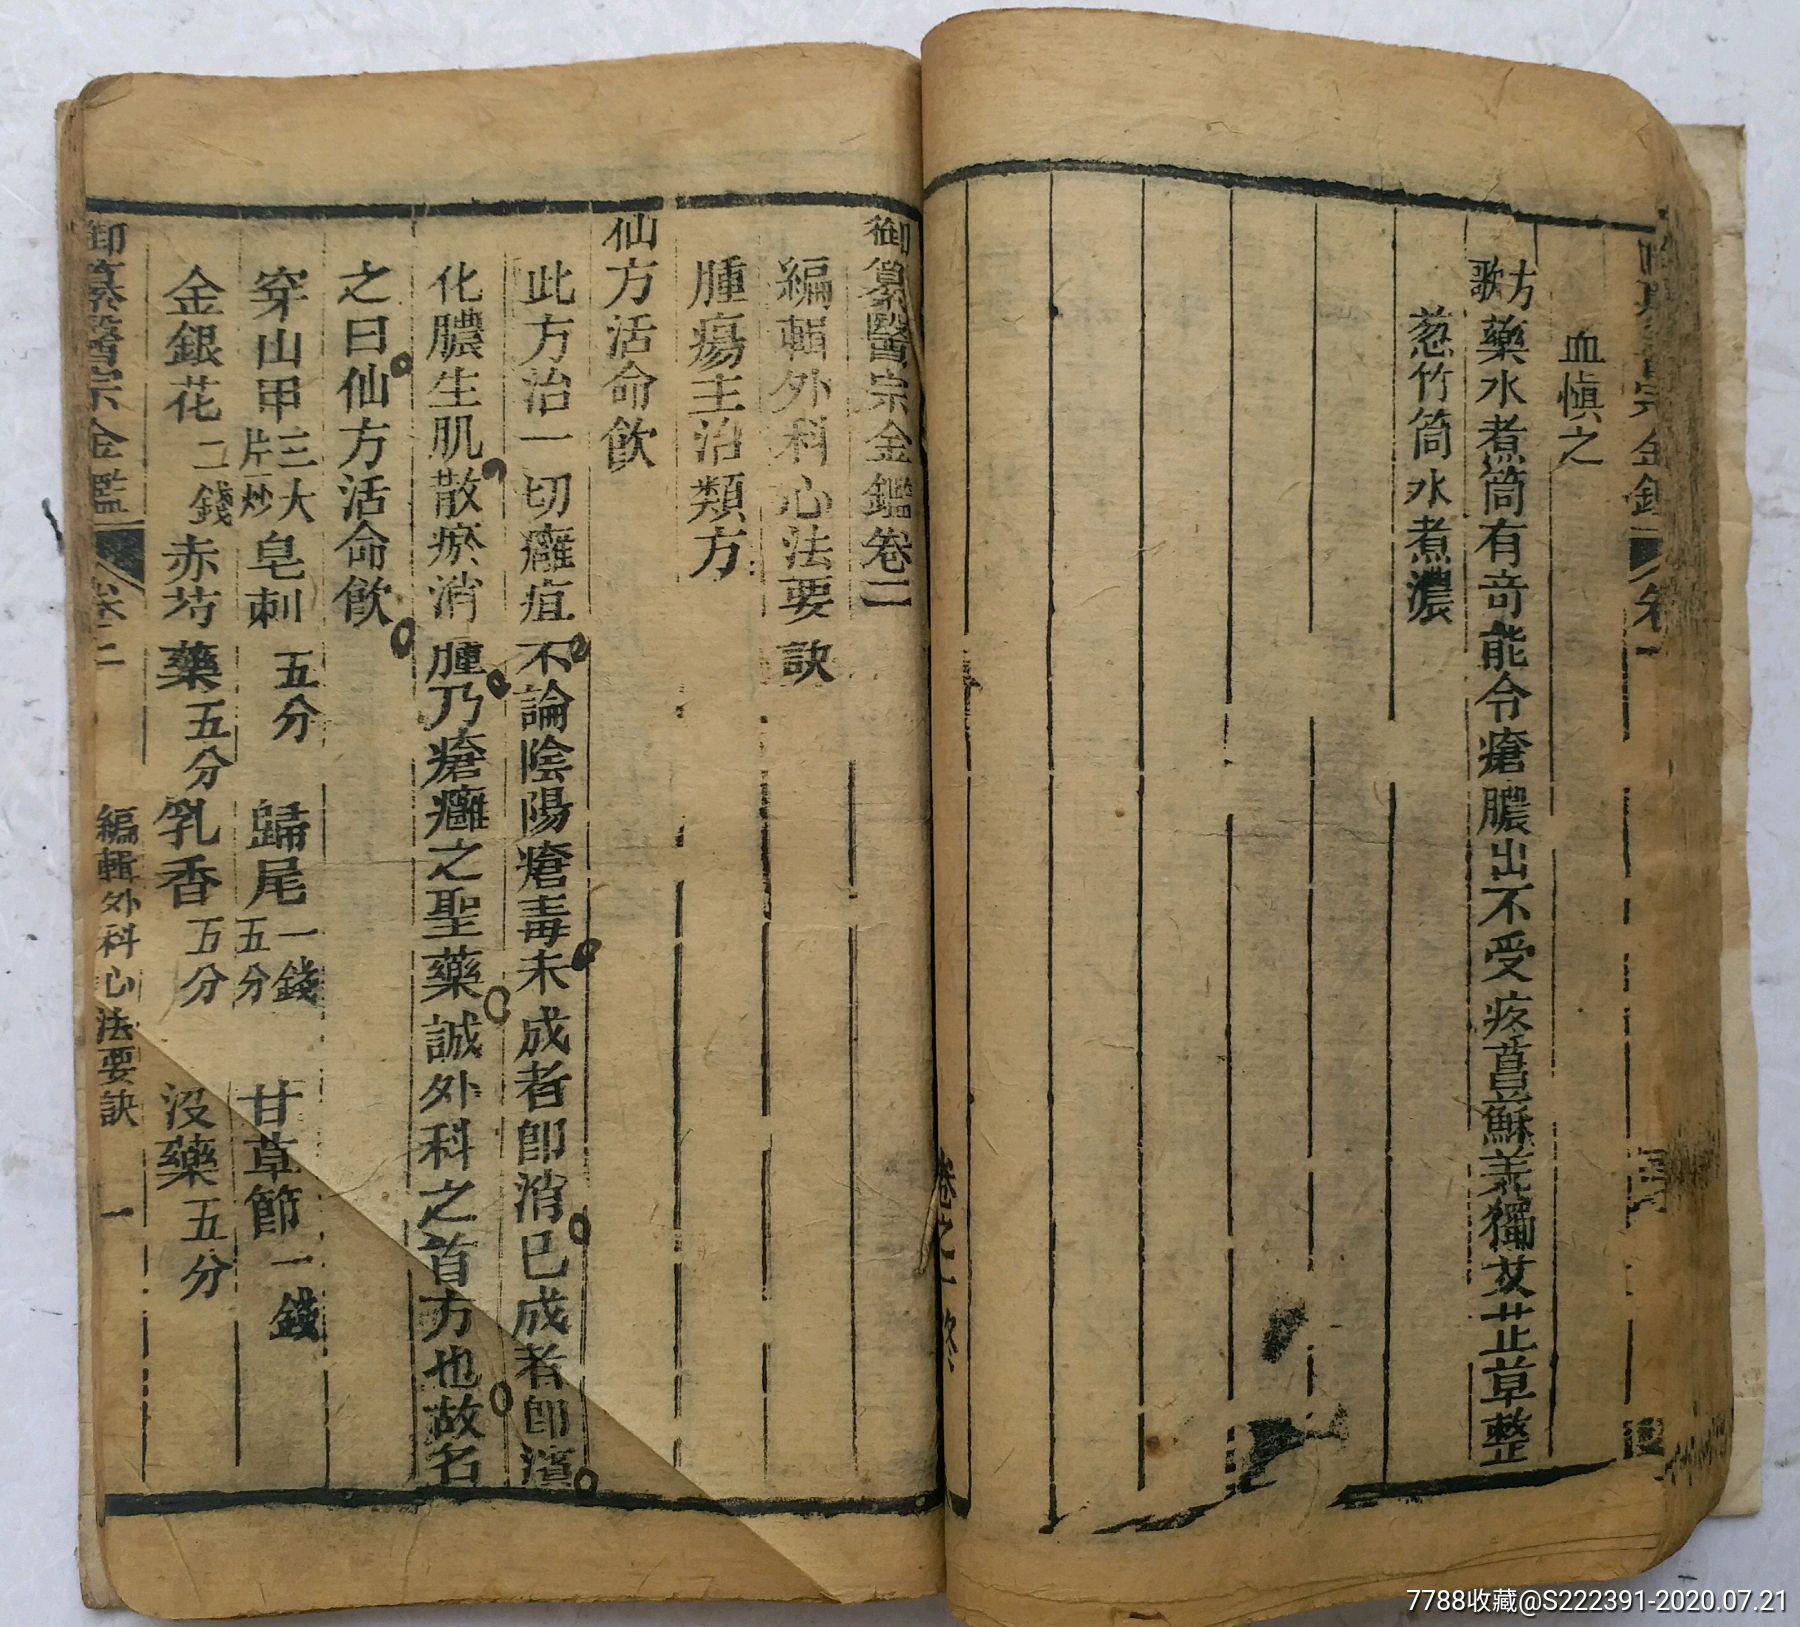 血慎之
方歌 藥水煮筒有竒能令瘡膿出不受疼菖蘇羌獨艾芷草整
葱竹筒水煮濃
卷之一終
御纂醫宗金鑑卷二
編輯外科心法要訣
腫瘍主治類方
仙方活命飲
此方治一切癰疽不論陰陽瘡毒未成者卽消已成者卽潰
化膿生肌散瘀消腫乃瘡癰之聖藥誠外科之首方也故名
之曰仙方活命飲
穿山甲三大片炒 皂刺五分 歸尾一錢五分 甘草節一錢
金銀花二錢 赤芍藥五分 乳香五分 沒藥五分
御纂醫宗金鑑 卷二 編輯外科心法要訣 一
7788收藏@S222391-2020.07.21